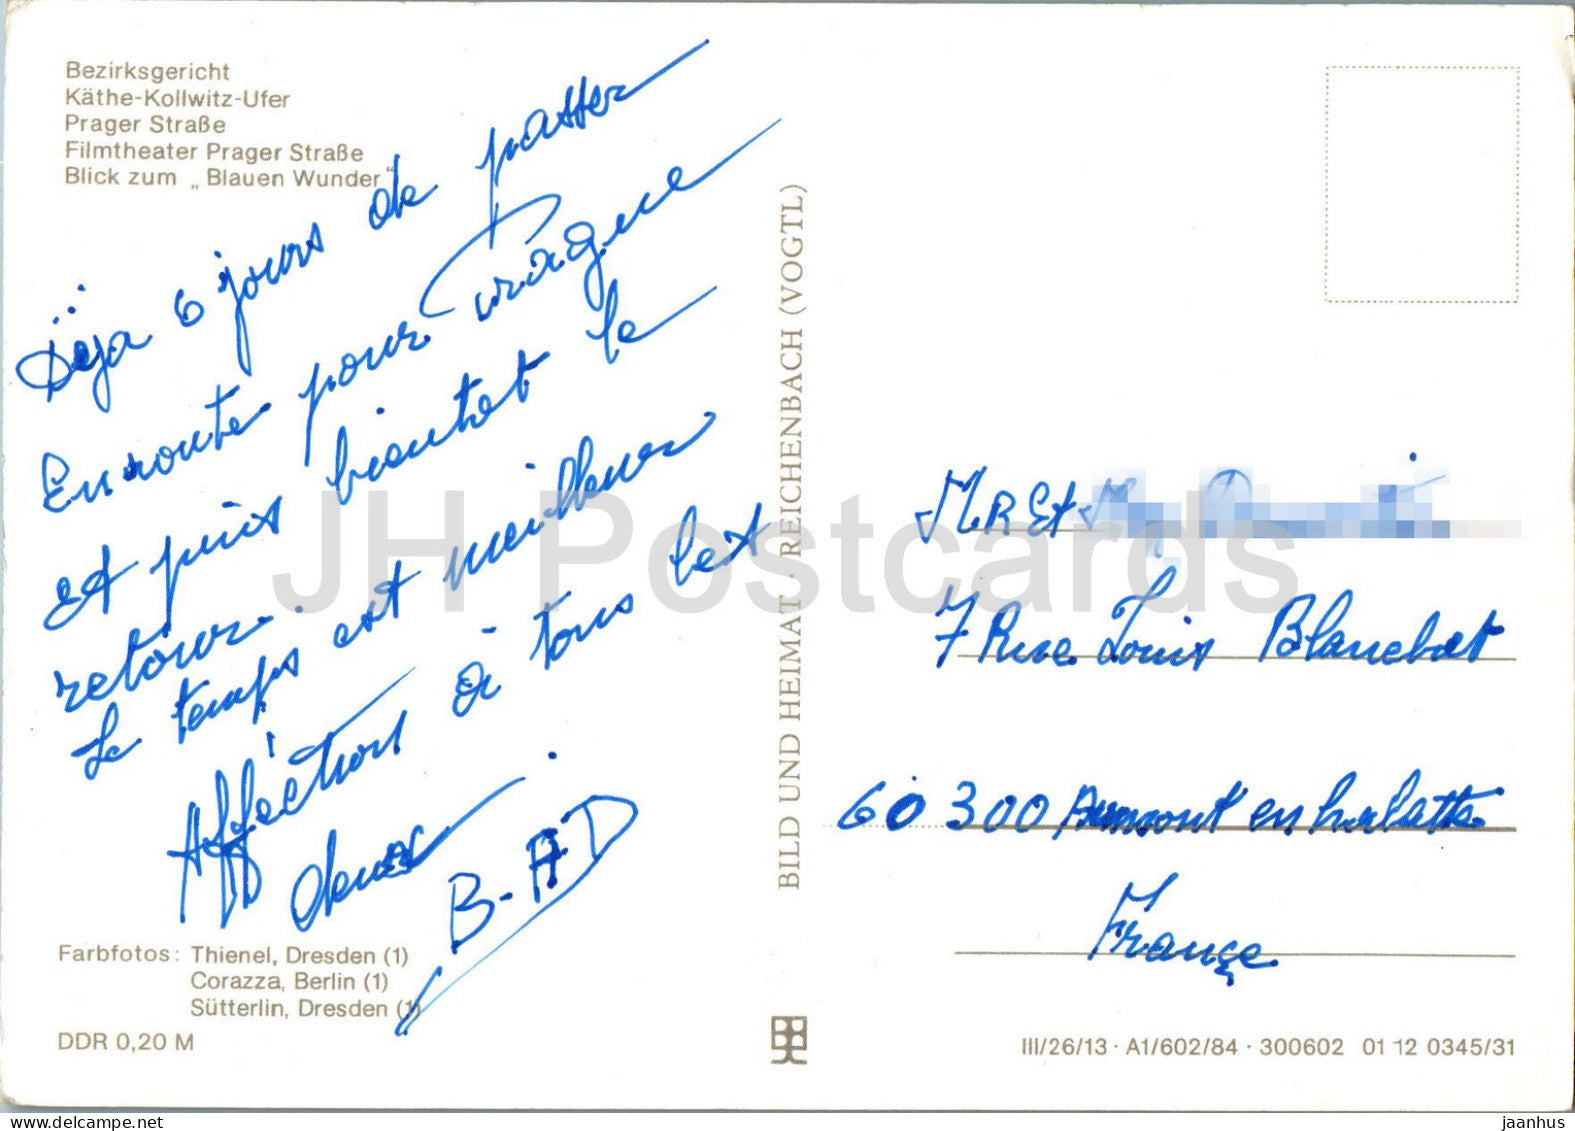 Bezirksgericht
Käthe-Kollwitz-Ufer
Prager Straße
Filmtheater Prager Straße
Blick zum „Blauen Wunder"
Deja 6 jours de passer
En route pour Prague
et puis bientot le
retour.
Le temps est meilleur
Affection à tous les
deux.
B-AD
Farbfotos: Thienel, Dresden (1)
Corazza, Berlin (1)
Sütterlin, Dresden (1)
DDR 0,20 M
BILD UND HEIMAT · REICHENBACH (VOGTL)
MR Et
7 Rue Louis Blanchet
60 300 Aumont en halatte
Françe
III/26/13 · A1/602/84 · 300602 01 12 0345/31
JH Postcards
jaanhus